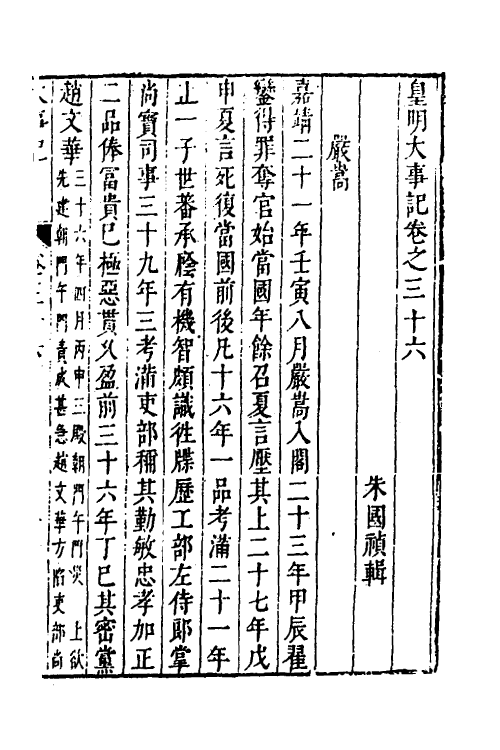 皇明大事記卷之三十六
朱國禎輯
嚴嵩
嘉靖二十一年壬寅八月嚴嵩入閣二十三年甲辰翟
鑾得罪奪官始當國年餘召夏言壓其上二十七年戊
申夏言死復當國前後凡十六年一品考滿二十一年
止一子世蕃承廕有機智頗識徃牒歷工部左侍郎掌
尚寶司事三十九年三考滿吏部稱其勤敏忠孝加正
二品俸富貴已極惡貫乆盈前三十六年丁巳其密黨
趙文華三十六年四月丙申三殿朝門午門災 上欲
先建朝門午門責成甚急趙文華方陷吏部尚